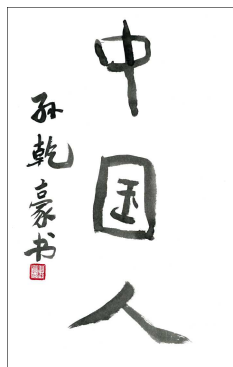 中国人
孙乾豪书